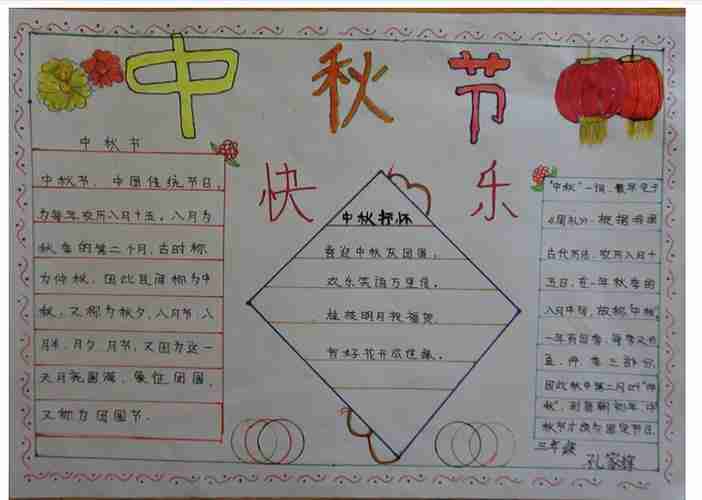 中秋节
快乐
中秋节
中秋节，中国传统节日，
为每年农历八月十五，八月为
秋季的第二个月，古时称
为仲秋，因此民间称为中
秋，又称为秋夕，八月节，八
月半，月夕，月节，又因为这一
天月亮圆满，象征团圆，
又称为团圆节.
中秋抒怀
喜迎中秋庆团圆，
欢乐笑语万里传。
桂枝明月祝福贺
智好花开
"中秋"一词，最早见于
《周礼》. 根据我国
古代历法，农历八月十
五日，在一年秋季的
八月中旬，故称"中秋
一年有四季，每季又分
孟、仲、季三部分，
因此秋中第二月叫"仲
秋"，到唐朝初年，中
秋节才成为固定节日.
三年级
孔家